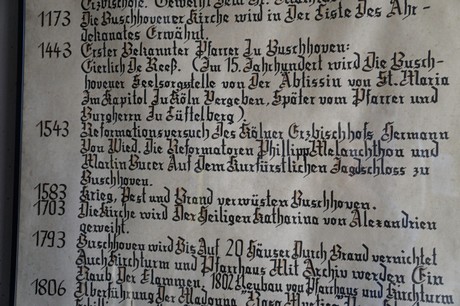 Erzbischöfe. Geweiht
1173 Die Buschhovener Kirche wird in Der Liste Des Ahr-
dekanates Erwähnt.
1443 Erster Bekannter Pfarrer Zu Buschhoven:
Gierlich De Reeß. (Im 15. Jahrhundert wird Die Busch-
hovener Seelsorgstelle von Der Äbtissin von St. Maria
Im Kapitol Zu Köln Vergeben, Später vom Pfarrer und
Burgherrn Zu Lüftelberg).
1543 Reformationsversuch Des Kölner Erzbischhofs Hermann
Von Wied. Die Reformatoren Phillipp Melanchthon und
Martin Bucer Auf Dem Kurfürstlichen Jagdschloss zu
Buschhoven.
1583 Krieg, Pest und Brand verwüsten Buschhoven.
1703 Die Kirche wird Der Heiligen Katharina von Alexandrien
geweiht.
1793 Buschhoven wird Bis Auf 20 Häuser Durch Brand vernichtet
Auch Kirchturm und Pfarrhaus Mit Archiv werden Ein
Raub Der Flammen. 1802 Neubau von Pfarrhaus und Kirchturm
1806 Überführung Der Madonna "Rosa